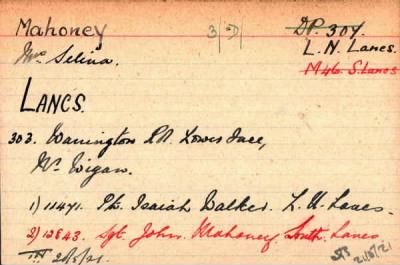 Mahoney
D.P. 304.
L.N. Lancs.
Mrs Selina.
M46 S.Lancs
LANCS.
303. Warrington Rd. Lower Ince,
Nr. Wigan.
1) 11471. Pte. Isaiah Walker. L.N. Lancs.
2) 12843. Sgt. John Mahoney. South. Lancs
21/5/21